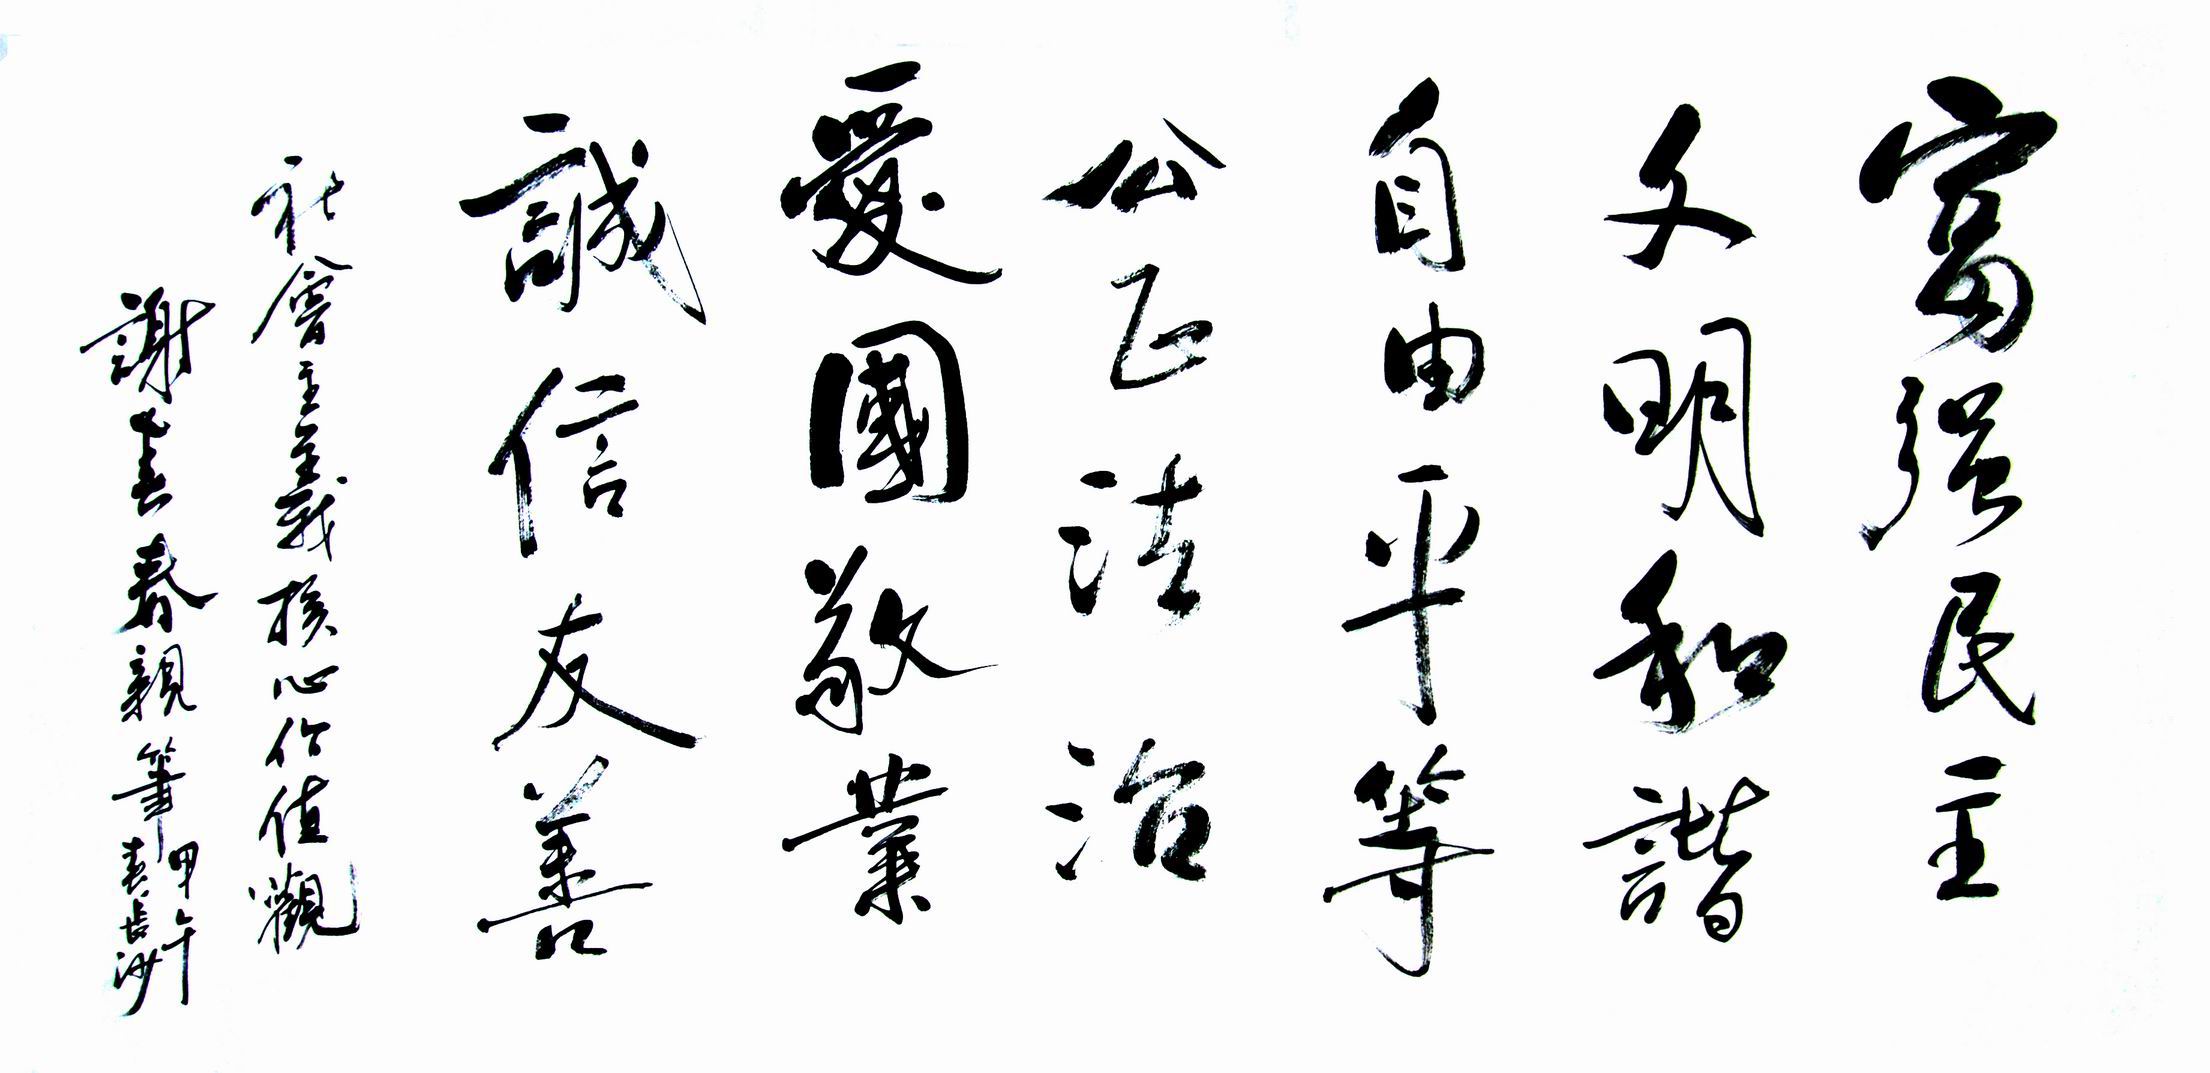 富强民主
文明和諧
自由平等
公正法治
愛國敬業
誠信友善
社會主義核心价值觀
謝春親筆
甲午
春長沙